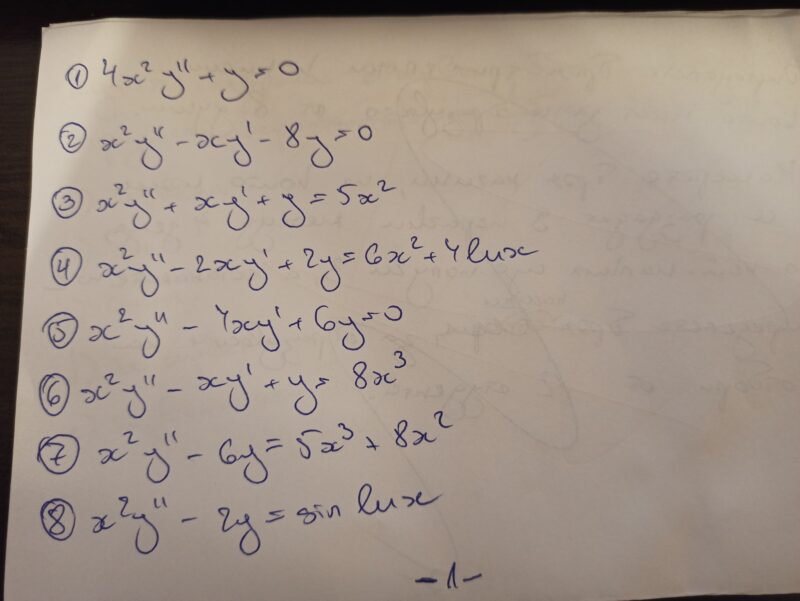 ① 4x² y'' + y = 0
② x² y'' - xy' - 8y = 0
③ x² y'' + xy' + y = 5x²
④ x² y'' - 2xy' + 2y = 6x² + 4 ln x
⑤ x² y'' - 4xy' + 6y = 0
⑥ x² y'' - xy' + y = 8x³
⑦ x² y'' - 6y = 5x³ + 8x²
⑧ x² y'' - 2y = sin ln x
-1-